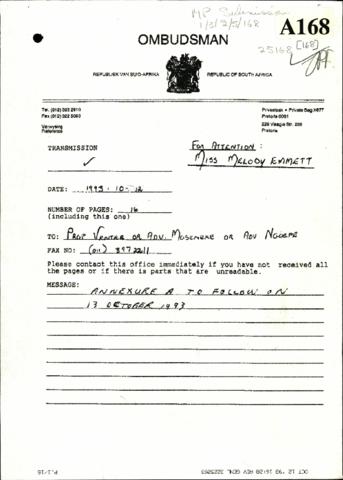 MP Submission
1/3/2/5/168
A168
25168 [168]
OMBUDSMAN
REPUBLIEK VAN SUID-AFRIKA
REPUBLIC OF SOUTH AFRICA
Tel. (012) 322 2910
Fax (012) 322 5093
Privaatsak • Private Bag X677
Pretoria 0001
Verwysing
Reference
228 Visagie Str. 228
Pretoria
TRANSMISSION
✓
FOR ATTENTION:
MISS MELODY EMMETT
DATE: 1993-10-12
NUMBER OF PAGES: 16
(including this one)
TO: PROF VENTER OR ADV. MOSENEKE OR ADV NGOEPE
FAX NO: (011) 3972211
Please contact this office immediately if you have not received all
the pages or if there is parts that are unreadable.
MESSAGE:
ANNEXURE A TO FOLLOW ON
13 OCTOBER 1993
P.1/16
OCT 12 '93 16:20 REV GENL 3225093